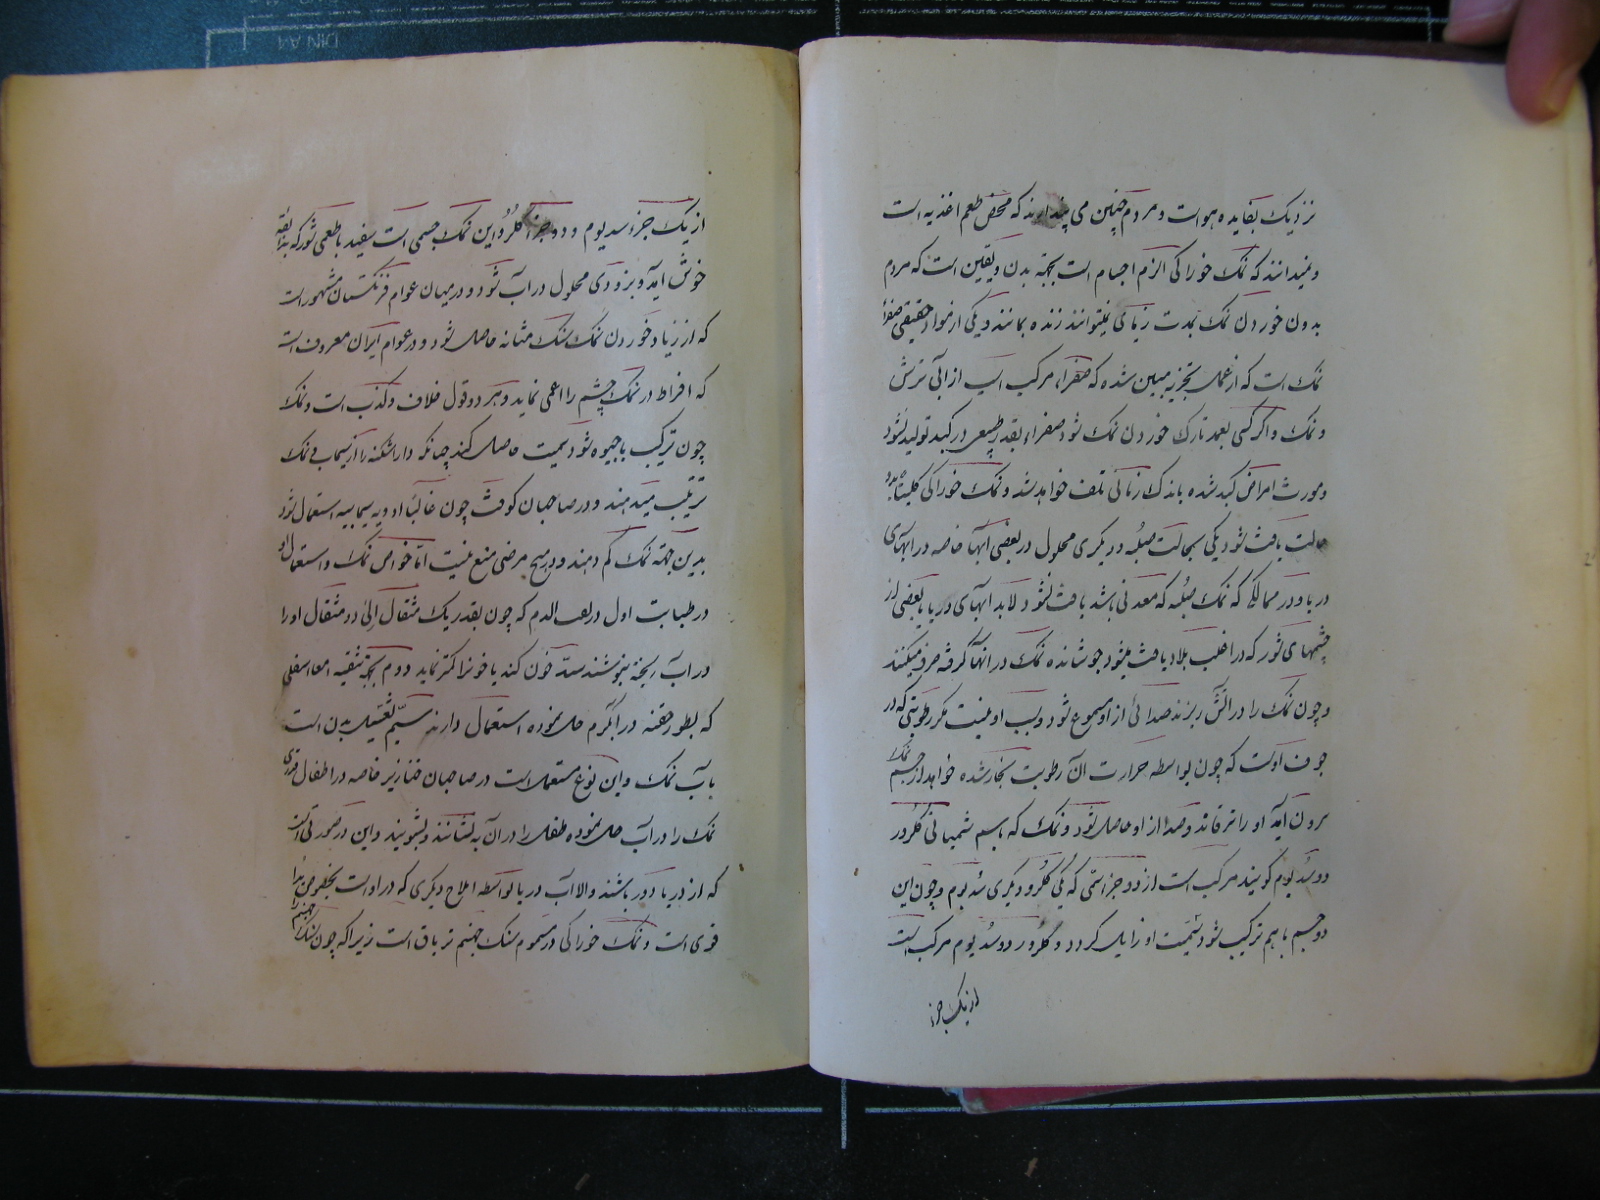 نزدیک بفایده هو است و مردم چنین می پندارند که محض طعم اغذیه است
و نمیدانند که نمک خوراکی الزم اجسام است بجهة بدن و یقین است که مردم
بدون خوردن نمک بمدت زیادی نمیتوانند زنده بمانند و یکی از مواد حقیقی صفرا
نمک است که از عمل تجزیه مبین شده که صفراء مرکب است از آبی ترش
و نمک و اگر کسی بعمد تارک خوردن نمک شود صفراء بقدر طبیعی در کبد تولید نشود
و مورث امراض کبد شده باندک زمانی تلف خواهد شد و نمک خوراکی کلیتا بدو
حالت یافت شود یکی بحالت صلبه و دیگری محلول در بعضی آبها خاصه در آبهای
دریا و در ممالکی که نمک صلبه که معدنی باشد یافت نشود لابد آبهای دریا یا بعضی از
چشمهای شور که در اغلب بلاد یافت میشود جوشانده نمک در آنها گرفته صرف میکنند
و چون نمک را در آتش ریزند صدائی از او مسموع شود و سبب او نیست مگر رطوبتی که در
جوف اوست که چون بواسطه حرارت آن رطوبت بخار شده خواهد از جسم نمک
برون آید او را ترقاند و صدا از او حاصل شود و نمک که باسم شمیائی کلرور
دوسدیوم گویند مرکب است از دو جزء سمی که یکی کلرو دیگری سدیوم و چون این
دو جسم با هم ترکیب شود سمیت او زایل گردد و کلرور دوسدیوم مرکب است
از یک جزء
از یک جزء سدیوم و دو جزء کلرو این نمک جسمی است سفید با طعمی شور که بذائقه
خوش آید و بزودی محلول در آب شود و در میان عوام فرنگستان مشهور است
که از زیاد خوردن نمک سنک مثانه حاصل شود و در عوام ایران معروف است
که افراط در نمک چشم را اعمی نماید و هر دو قول خلاف و کذب است و نمک
چون ترکیب با جیوه شود سمیت حاصل کند چنانکه داراشکنه را از سیماب و نمک
ترتیب میدهند و در صاحبان کوفت چون غالبا ادویه سیمابیه استعمال شود
بدین جهة نمک کم دهند و در هیچ مرضی منع نیست اما خواص نمک و استعمال او
در طبابت اول در نفث الدم که چون بقدر یک مثقال الی دو مثقال او را
در آب ریخته بنوشند سد خون کند یا خونرا کمتر نماید دوم بجهة تنقیه امعا سفلی
که بطور حقنه در آبگرم حل نموده استعمال دارند سیم تغسیل بدن است
با آب نمک و این نوع مستعمل است در صاحبان خنازیر خاصه در اطفال قدری
نمک را در آب حل نموده طفل را در آن آب بنشانند و بشویند و این در صورتی است
که از دریا دور باشند و الا آب دریا بواسطه املاح دیگری که در او است بخصوص
قوی است و نمک خوراکی در سموم سنک جهنم تریاق است زیرا که چون سنک جهنم را